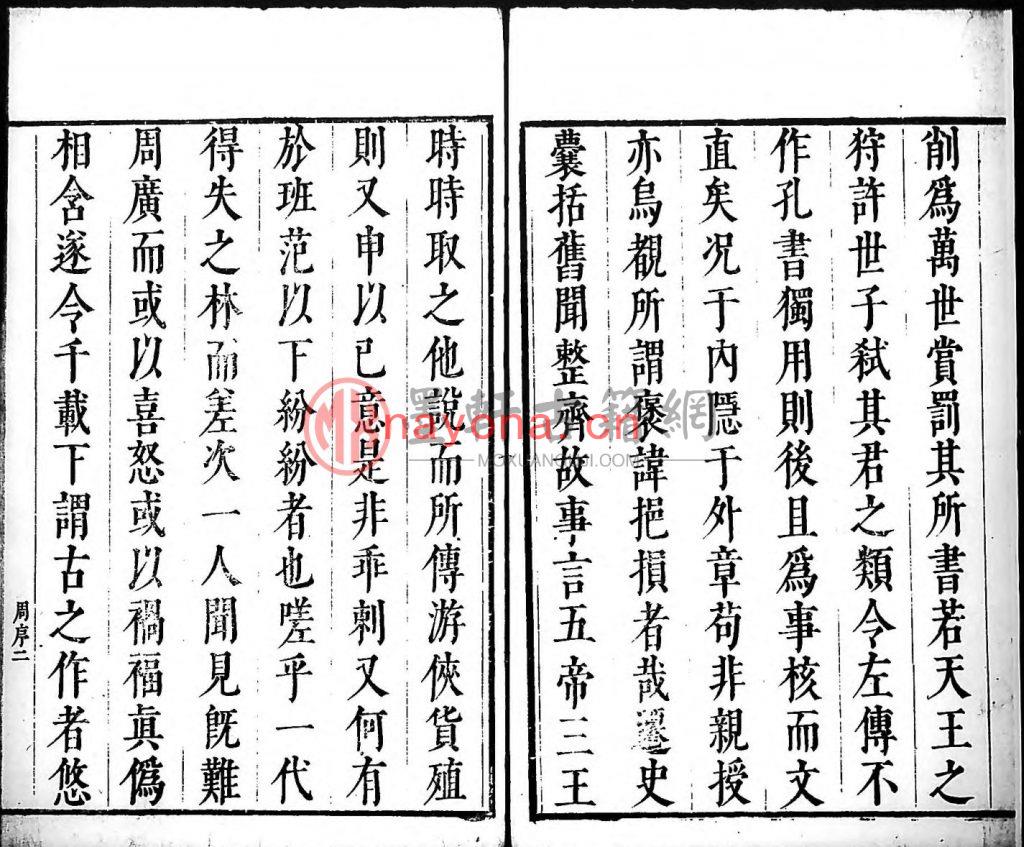 削爲萬世賞罰其所書若天王之
狩許世子弑其君之類令左傳不
作孔書獨用則後且爲事核而文
直矣况于內隱于外章苟非親授
亦烏覩所謂褒諱挹損者哉遷史
囊括舊聞整齊故事言五帝三王
時時取之他說而所傳游俠貨殖
則又申以已意是非乖剌又何有
於班范以下紛紛者也嗟乎一代
得失之林而差次一人聞見旣難
周廣而或以喜怒或以禍福眞僞
相含遂令千載下謂古之作者悠
周序二
墨軒古籍網
nayona.cn
MOXUANGUJI.COM